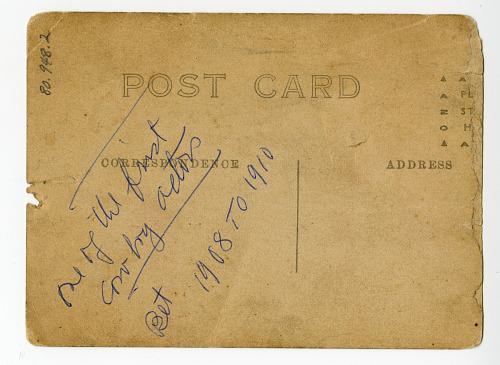 80.948.2
POST CARD
CORRESPONDENCE
ADDRESS
one of the first
cowboy actors
Bet 1908 TO 1910